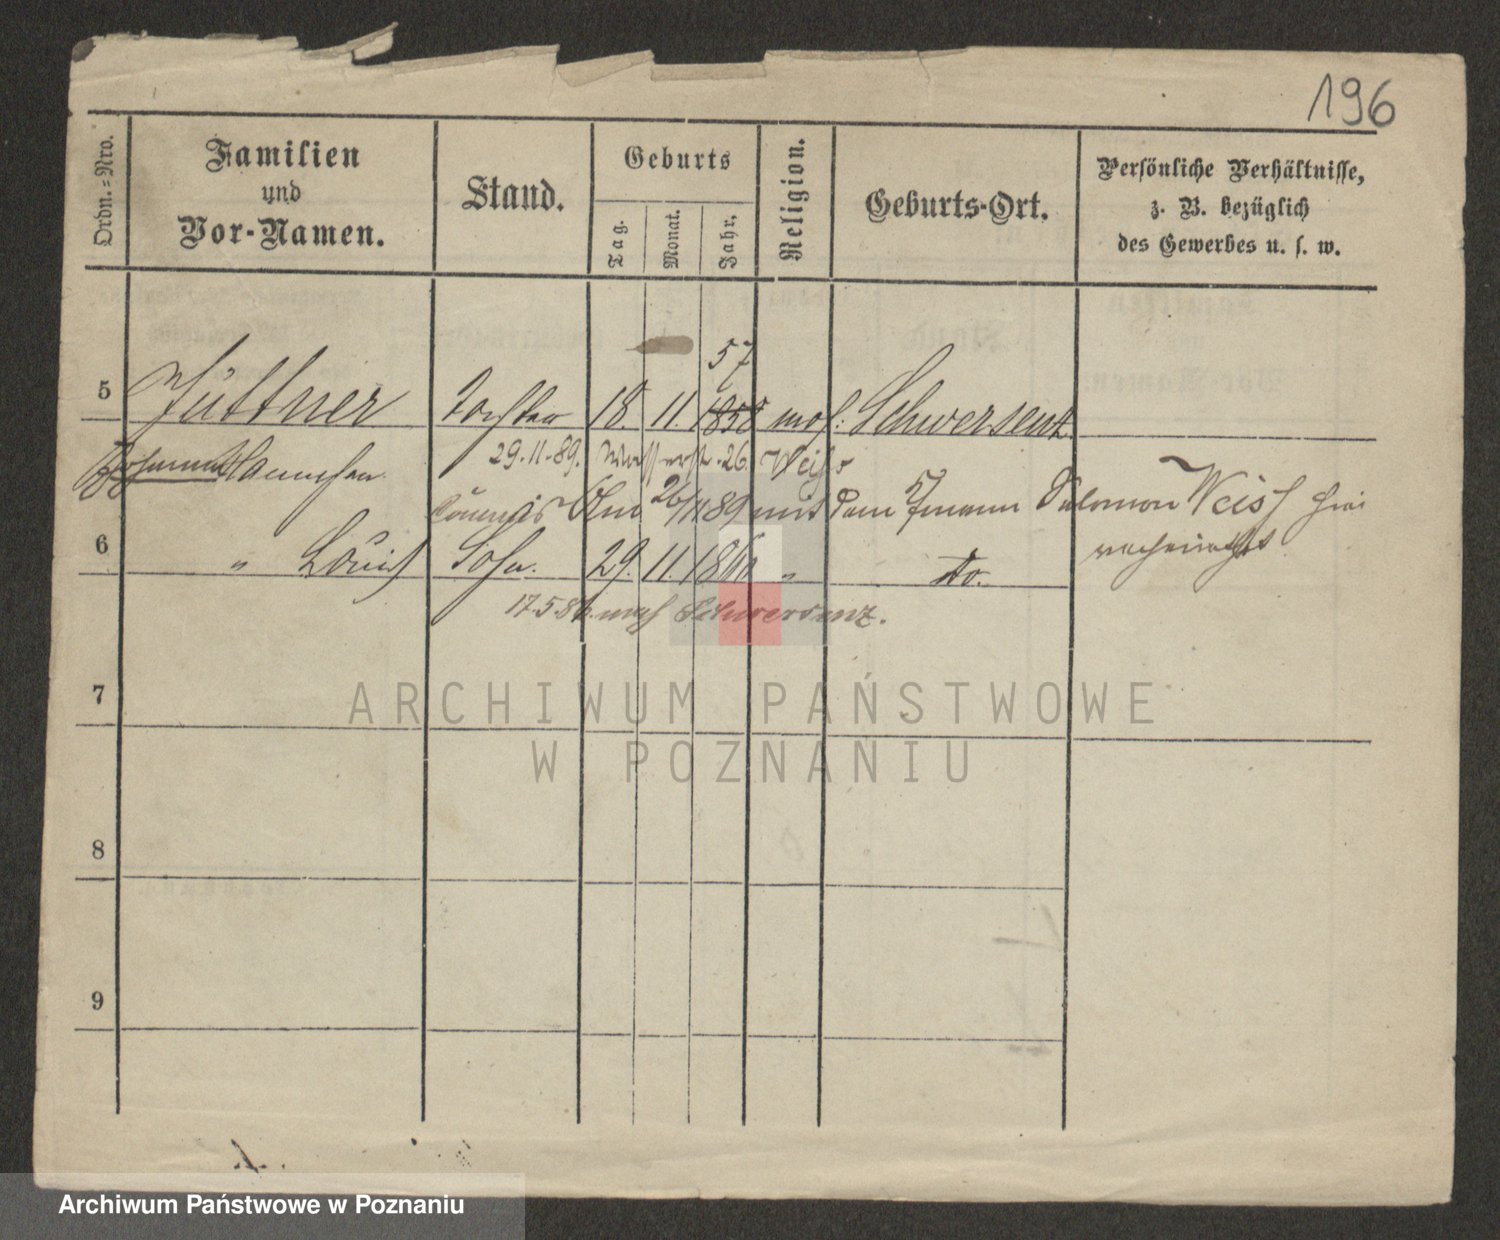 196
Ordn.=Nro.
Familien
und
Vor-Namen.
Stand.
Geburts
Tag.
Monat.
Jahr.
Religion.
Geburts-Ort.
Persönliche Verhältnisse,
z. B. bezüglich
des Gewerbes u. s. w.
57
5 Tochter 18. 11. 1858 mos. Schwersenz
29.11.89. Wasserstr. 26. Weiss
26/11 89 mit dem Salomon Weiss
6 " Louis Sohn. 29. 11. 1866 " do.
17.5.86. nach Schwersenz.
7
8
9
ARCHIWUM PAŃSTWOWE
W POZNANIU
Archiwum Państwowe w Poznaniu